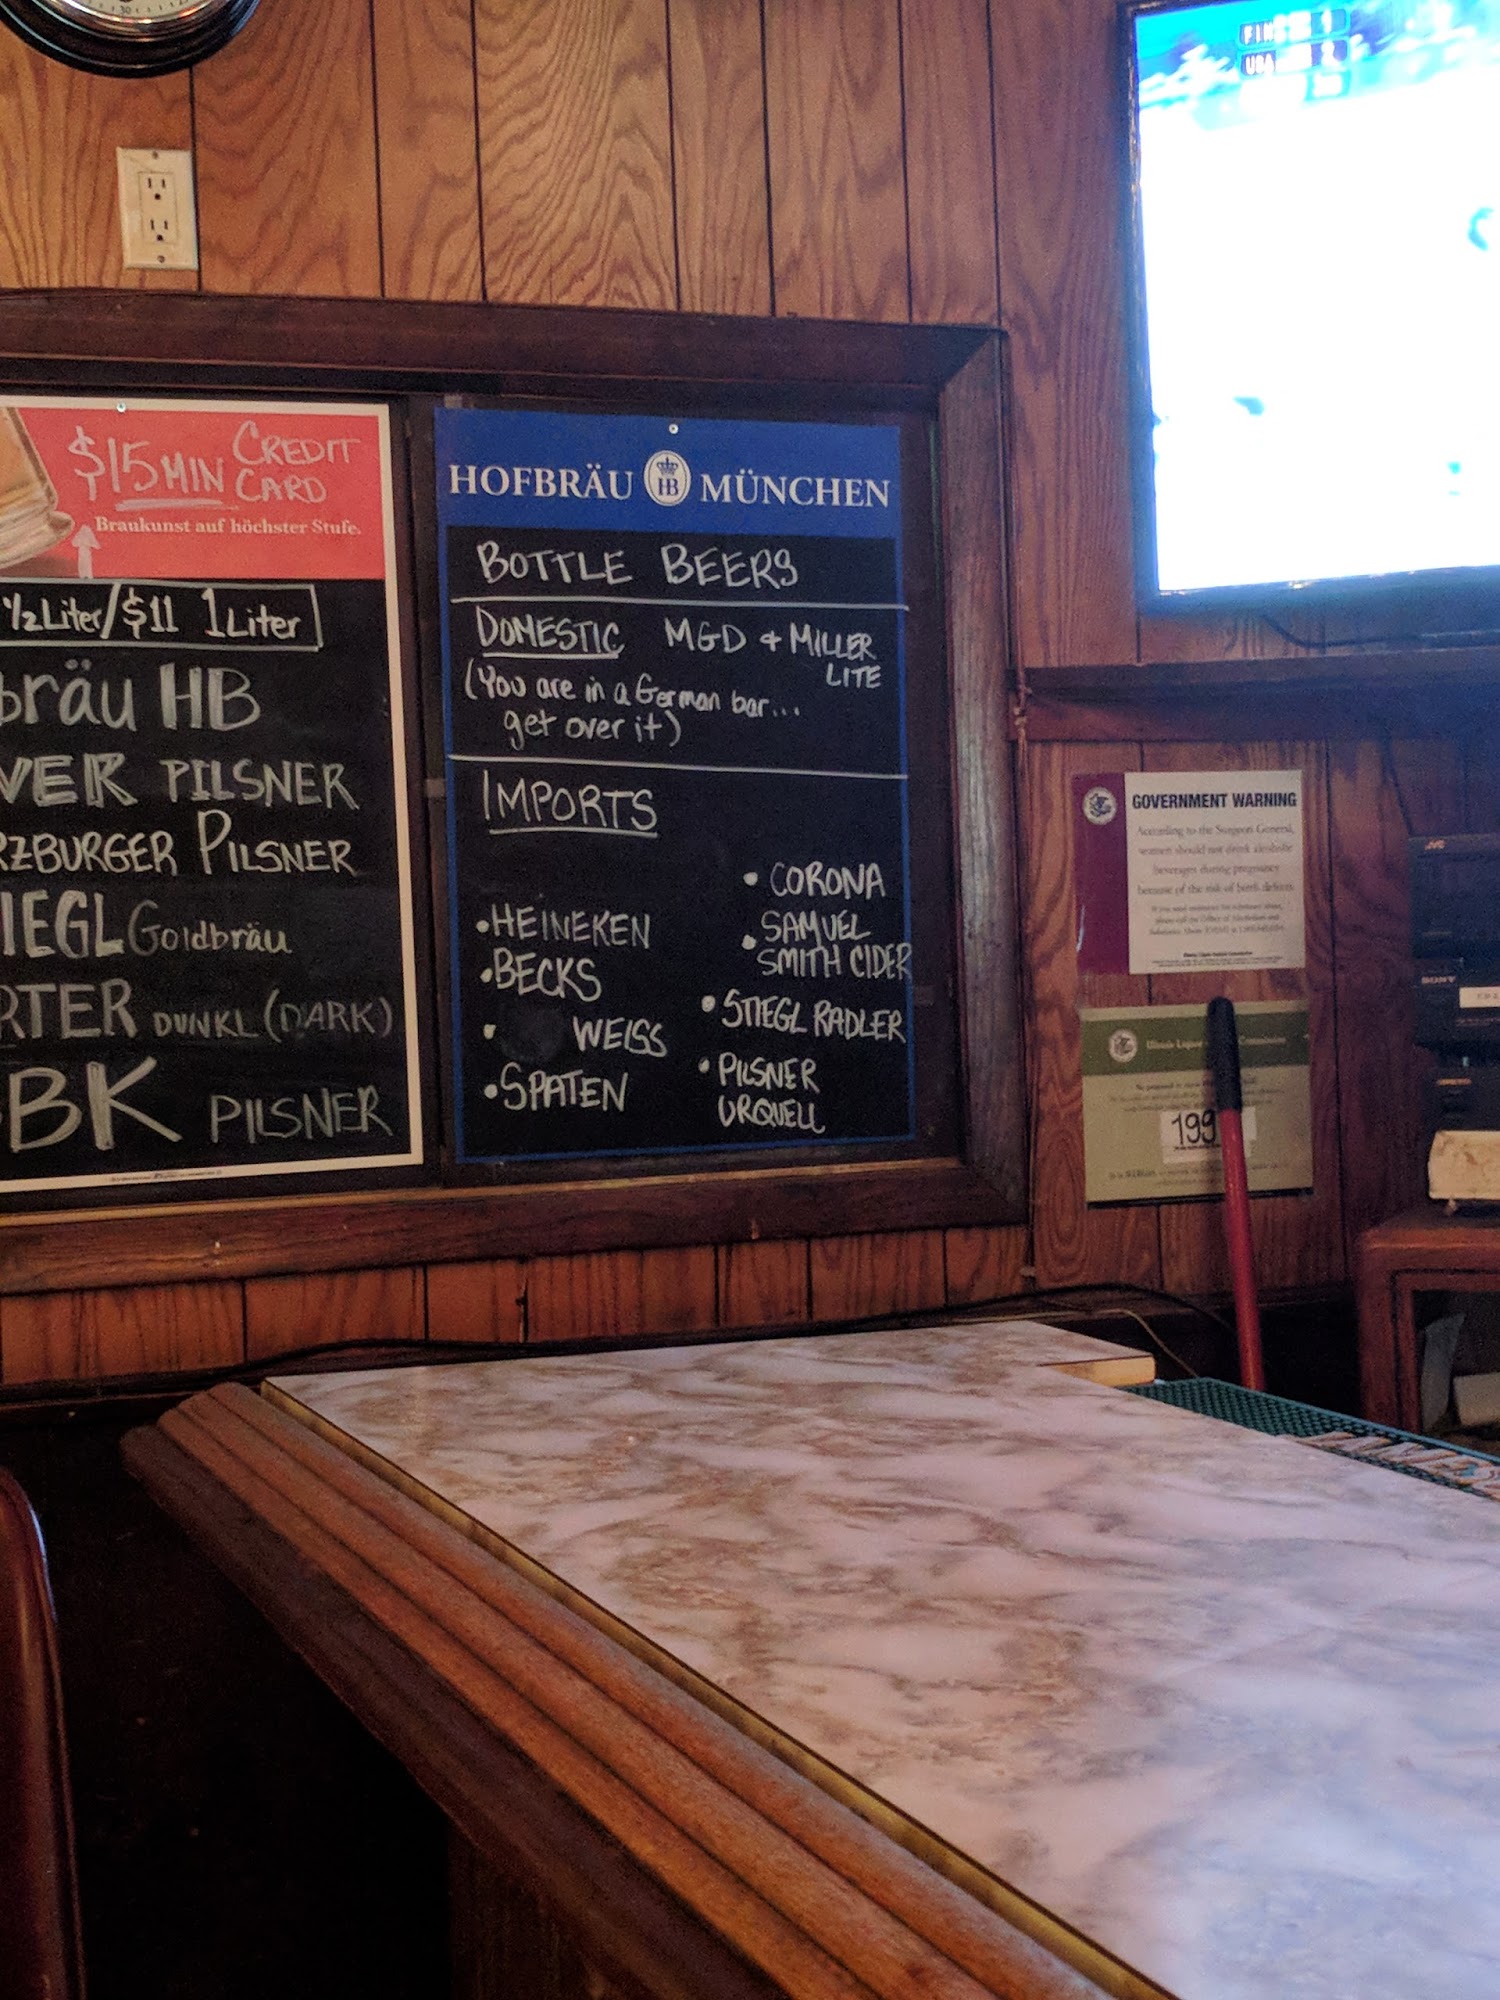 $15 MIN CREDIT CARD
Braukunst auf höchster Stufe.
½ Liter/$11 1 Liter
bräu HB
VER PILSNER
RZBURGER PILSNER
IEGL Goldbräu
RTER DUNKL (DARK)
BK PILSNER
HOFBRÄU HB MÜNCHEN
BOTTLE BEERS
DOMESTIC MGD + MILLER
LITE
(You are in a German bar...
get over it)
IMPORTS
• HEINEKEN
• BECKS
• WEISS
• SPATEN
• CORONA
• SAMUEL
SMITH CIDER
• STIEGL RADLER
• PILSNER
URQUELL
FIN
USA 2
GOVERNMENT WARNING
According to the Surgeon General,
women should not drink alcoholic
beverages during pregnancy
because of the risk of birth defects
Illinois Liquor Commission
199
JVC
SONY